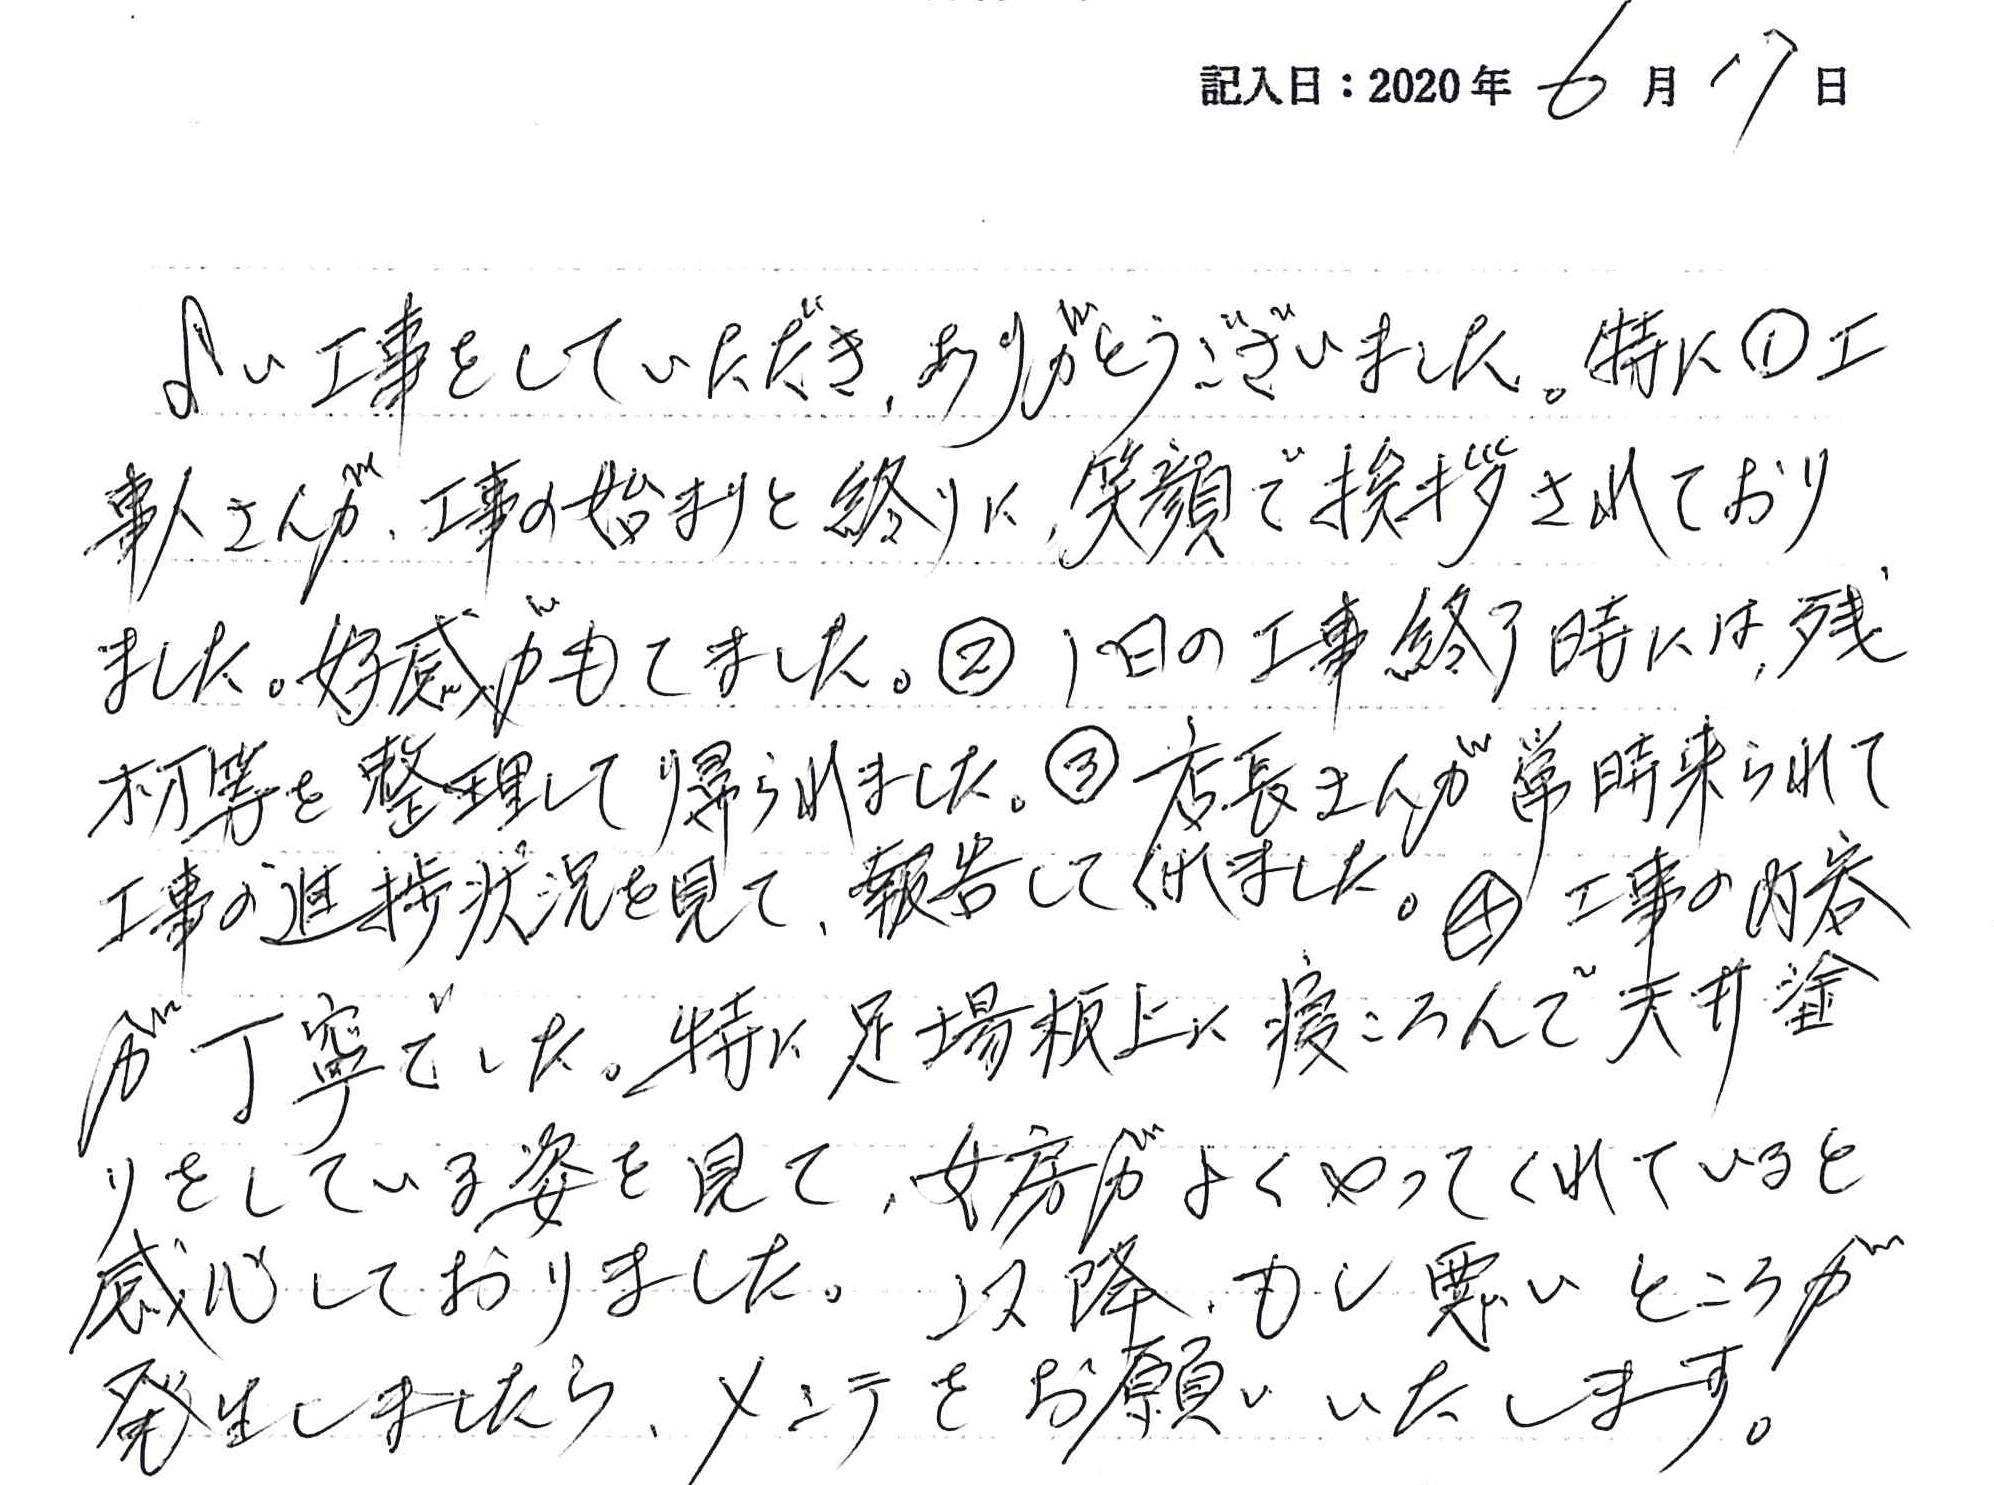 記入日：2020年 6月 17日
よい工事をしていただき、ありがとうございました。特に①工
事人さんが、工事の始まりと終りに、笑顔で挨拶されており
ました。好感がもてました。②1日の工事終了時には、残
材等を整理して帰られました。③店長さんが常時来られて
工事の進捗状況を見て、報告してくれました。④工事の内容
が丁寧でした。特に足場板上に寝ころんで天井塗
りをしている姿を見て、女房がよくやってくれていると
感心しておりました。以降、もし悪いところが
発生しましたら、メンテをお願いいたします。